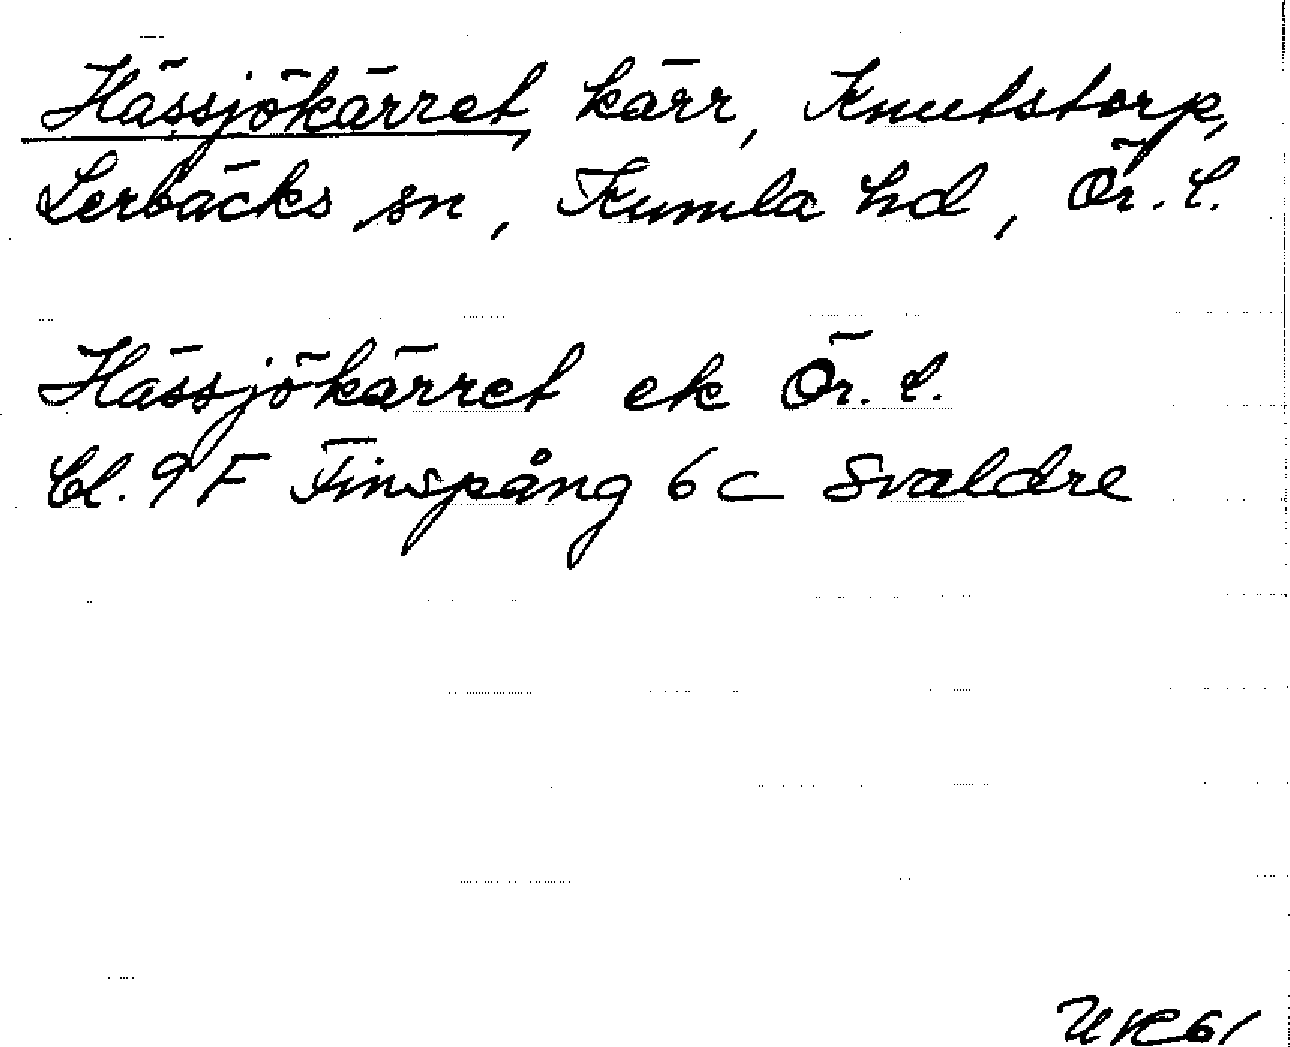 Hässjökärret, kärr, Knutstorp,
Lerbäcks sn, Kumla hd, Ör. l.
Hässjökärret ek Ör. l.
Bl. 9 F Finspång 6 c Svaldre